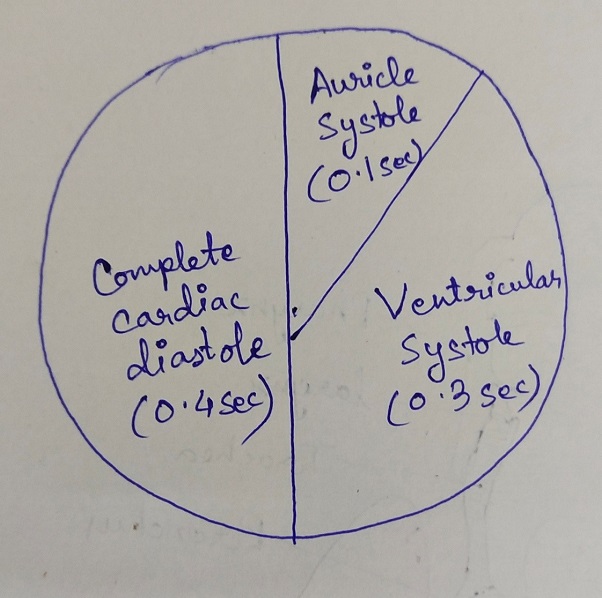 Auricle
Systole
(0.1sec)
Complete
cardiac
diastole
(0.4sec)
Ventricular
Systole
(0.3 sec)